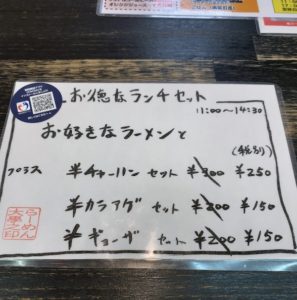 お徳なランチセット
11:00〜14:30
お好きなラーメンと
(税別)
プラス 半チャーハン セット ¥300 ¥250
半カラアゲ セット ¥200 ¥150
半ギョーザ セット ¥200 ¥150
らーめん